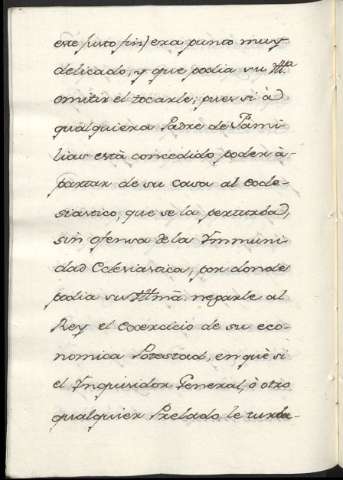 este justo fin) era punto muy
delicado, y que podia su Illma
omitir el tocarle, pues si à
qualquiera Padre de Fami-
lias està concedido poder à-
partar de su casa al ecle-
siastico, que se la perturba,
sin ofensa de la Ymmuni-
dad Ecclesiastica, por donde
podia su Illmâ negarle al
Rey el exercicio de su eco-
nomica Potestad, en què si
el Ynquisidor General, ò otro
qualquier Prelado le turba-